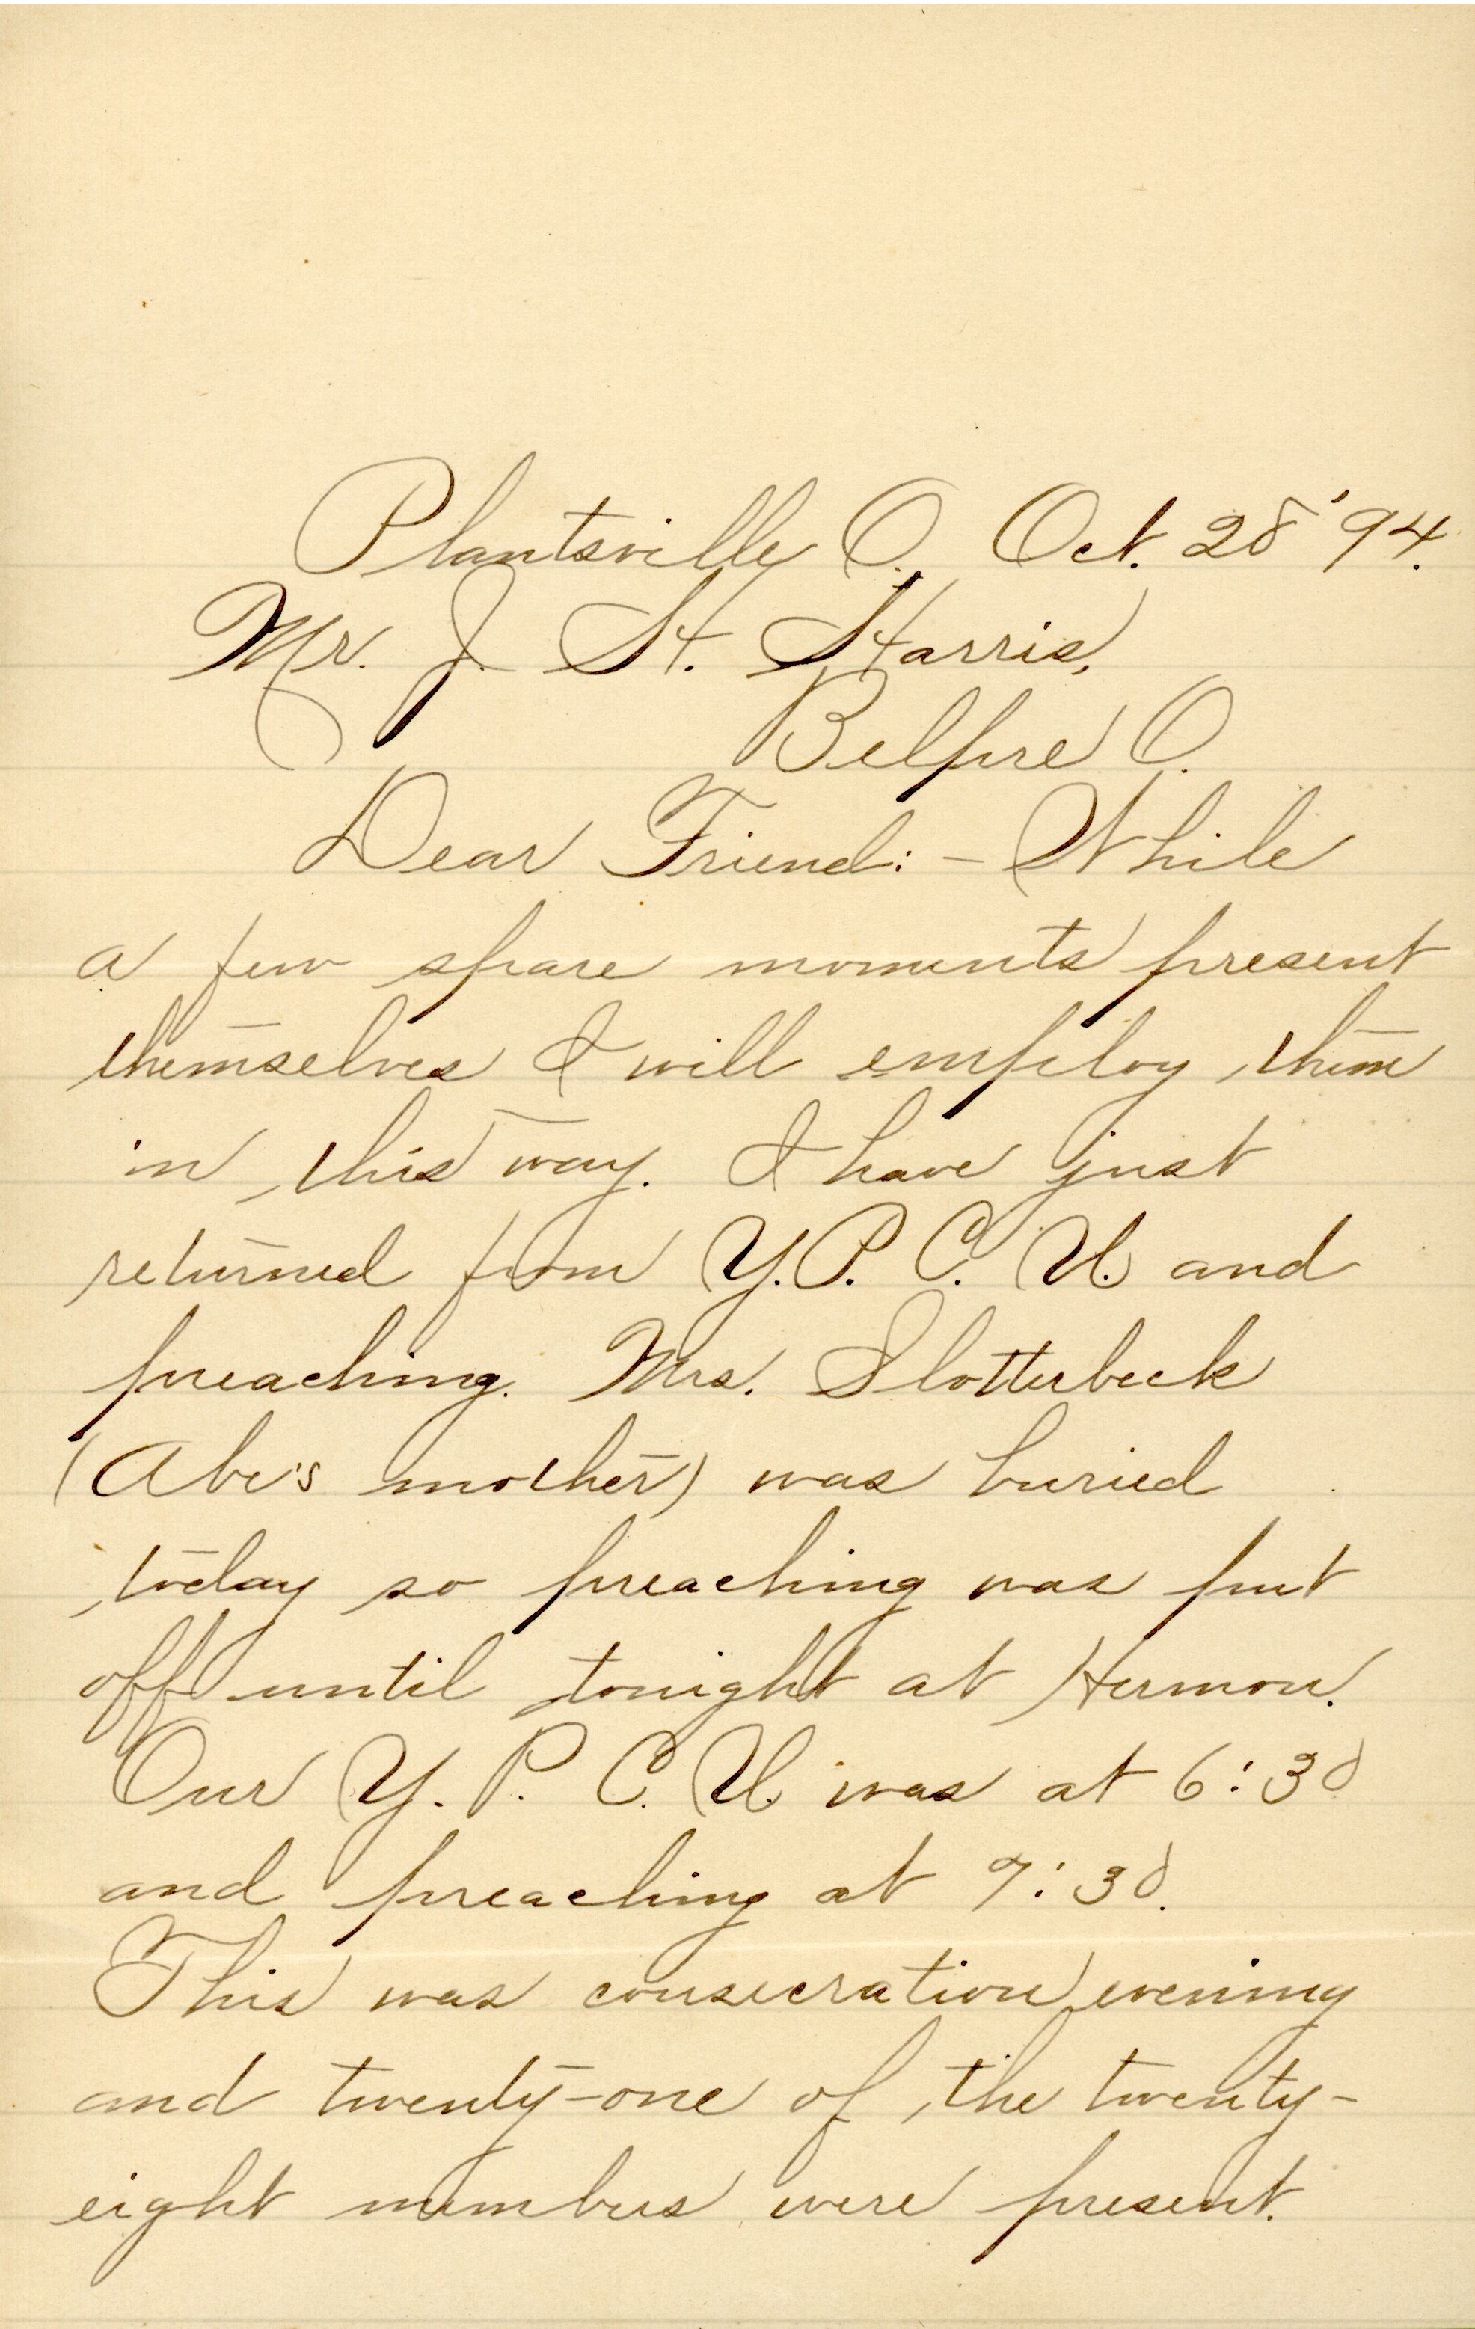 Plantsville O. Oct. 28 '94.
Mr. J. H. Harris,
Belpre O.
Dear Friend: - While
a few spare moments present
themselves I will employ them
in this way. I have just
returned from Y.P.C.U. and
preaching. Mrs. Slotterbeck
(Abe's mother) was buried
today so preaching was put
off until tonight at Hermon.
Our Y.P.C.U. was at 6:30
and preaching at 7:30.
This was consecration evening
and twenty-one of the twenty-
eight members were present.